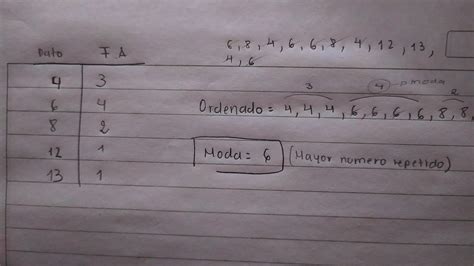 Dato F.A
4 3
6 4
8 2
12 1
13 1
6, 8, 4, 6, 6, 8, 4, 12, 13,
4, 6
3 4 moda 2
Ordenado = 4, 4, 4, 6, 6, 6, 6, 8, 8,
Moda = 6 (Mayor numero repetido)